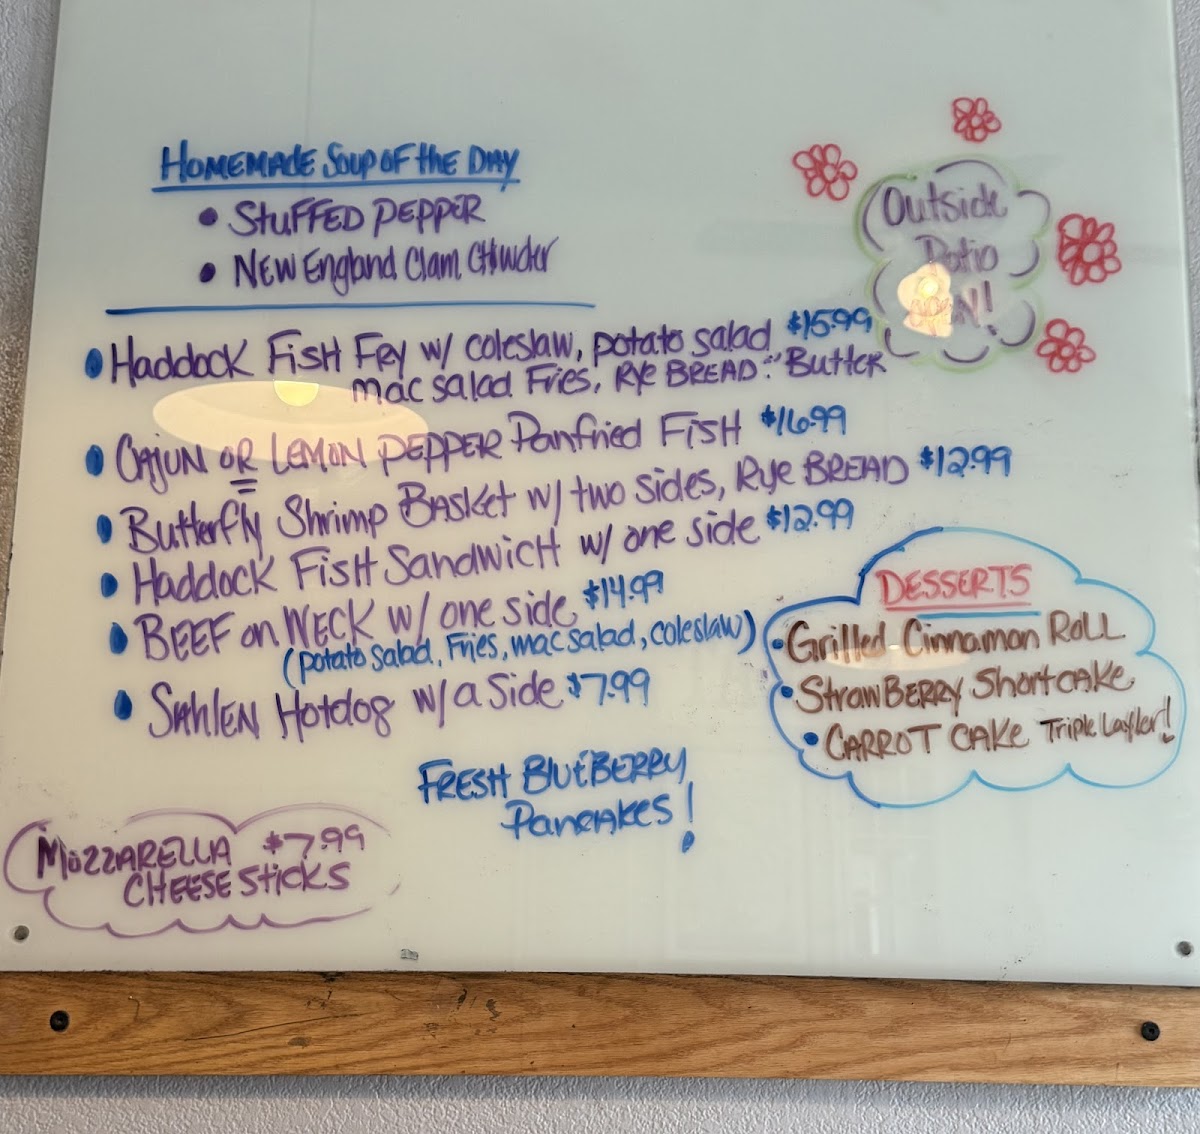 HOMEMADE SOUP OF the DAY
• StuFFED PEPPER
• NEW England Clam Chowder
• Haddock Fish Fry w/ coleslaw, potato salad $15.99
mac salad Fries, Rye BREAD & Butter
• Cajun OR LEMON PEPPER Panfried Fish $16.99
• Butterfly Shrimp Basket w/ two sides, Rye BREAD $12.99
• Haddock Fish Sandwich w/ one side $12.99
• BEEF on WECK w/ one side $14.99
(potato salad, Fries, mac salad, coleslaw)
• Sahlen Hotdog w/ a Side $7.99
FRESH BluEBERRY
Pancakes!
MozzARELLA $7.99
CHEESE Sticks
Outside
Patio
DESSERTS
• Grilled Cinnamon Roll
• StrawBERRY Shortcake
• CARROT CAKE Triple Layler!